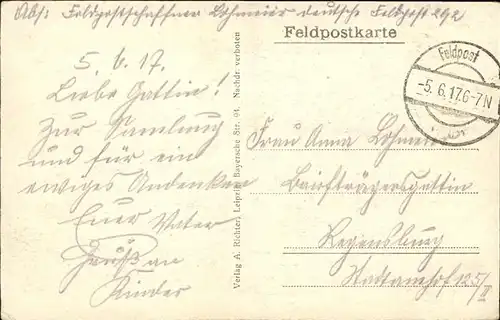 Abs: Feldpostschaffner Lohmeier deutsche Feldpost 292
Feldpostkarte
Feldpost
-5.6.17.6-7N
5.6.17.
Liebe Gattin!
Zur Samlung
und für ein
ewiges Andenken
Euer Vater
Gruß an
Kinder
Verlag A. Richter, Leipzig, Bayersche Str. 91. Nachdr. verboten
Frau Anna Lohmeier
Briefträgersgattin
Regensburg
Stadtamhof 125/II